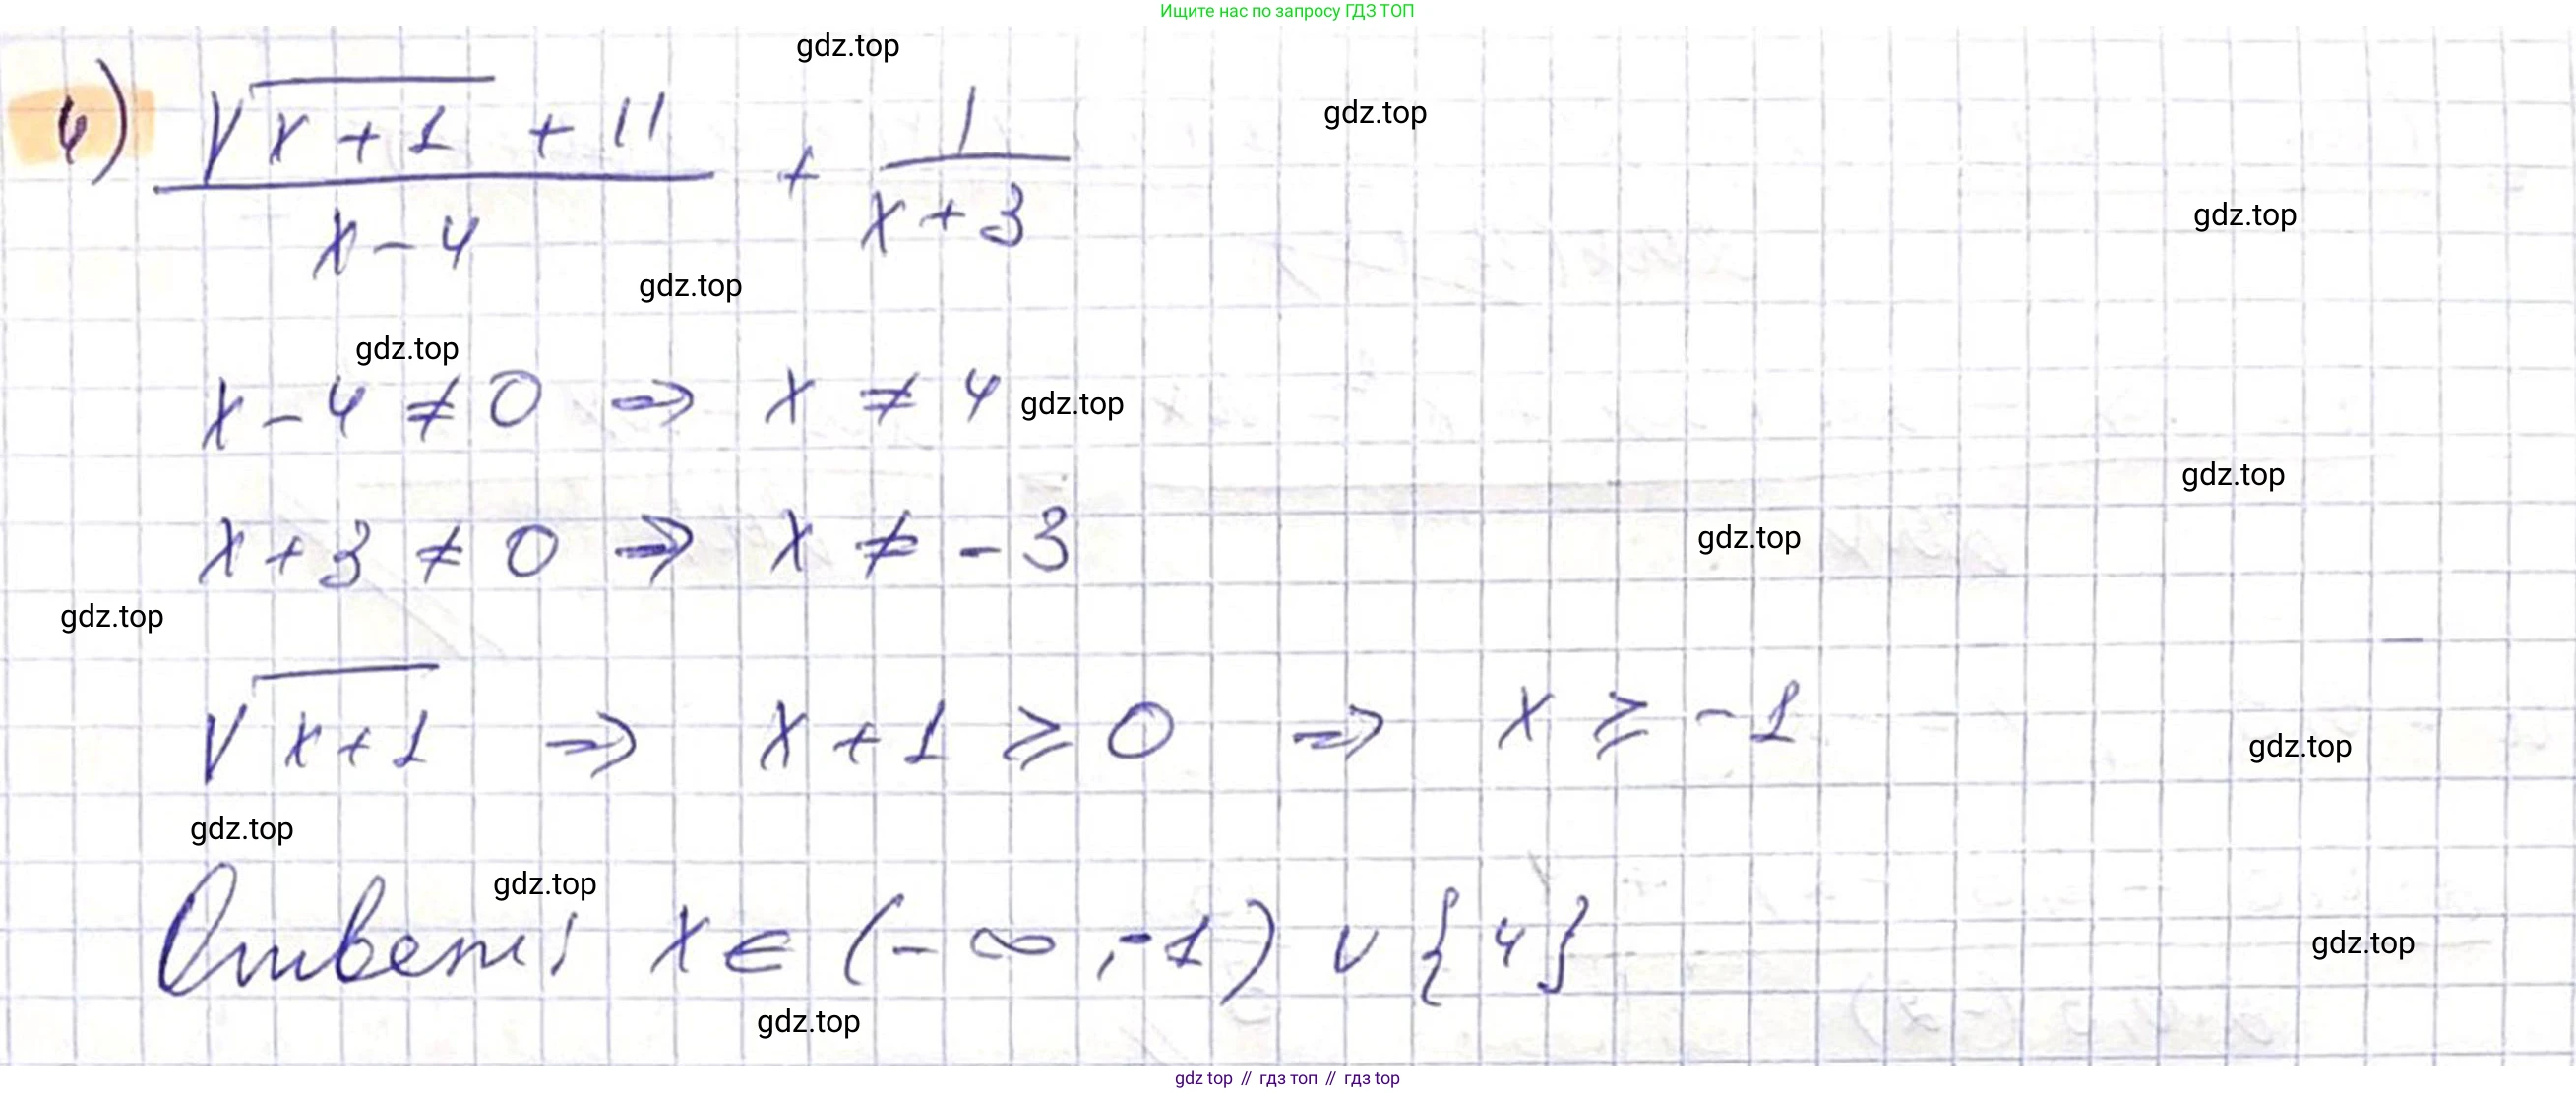 Ищите нас по запросу ГДЗ ТОП
gdz.top
gdz.top
4) (√(x + 1) + 11)/(x - 4) + 1/(x + 3)
gdz.top
gdz.top
gdz.top
x - 4 ≠ 0 ⇒ x ≠ 4
gdz.top
gdz.top
x + 3 ≠ 0 ⇒ x ≠ - 3
gdz.top
gdz.top
√(x + 1) ⇒ x + 1 ≥ 0 ⇒ x ≥ -1
gdz.top
gdz.top
gdz.top
Ответ: x ∈ (- ∞, -1) ∪ {4}
gdz.top
gdz.top
gdz top // гдз топ // гдз top